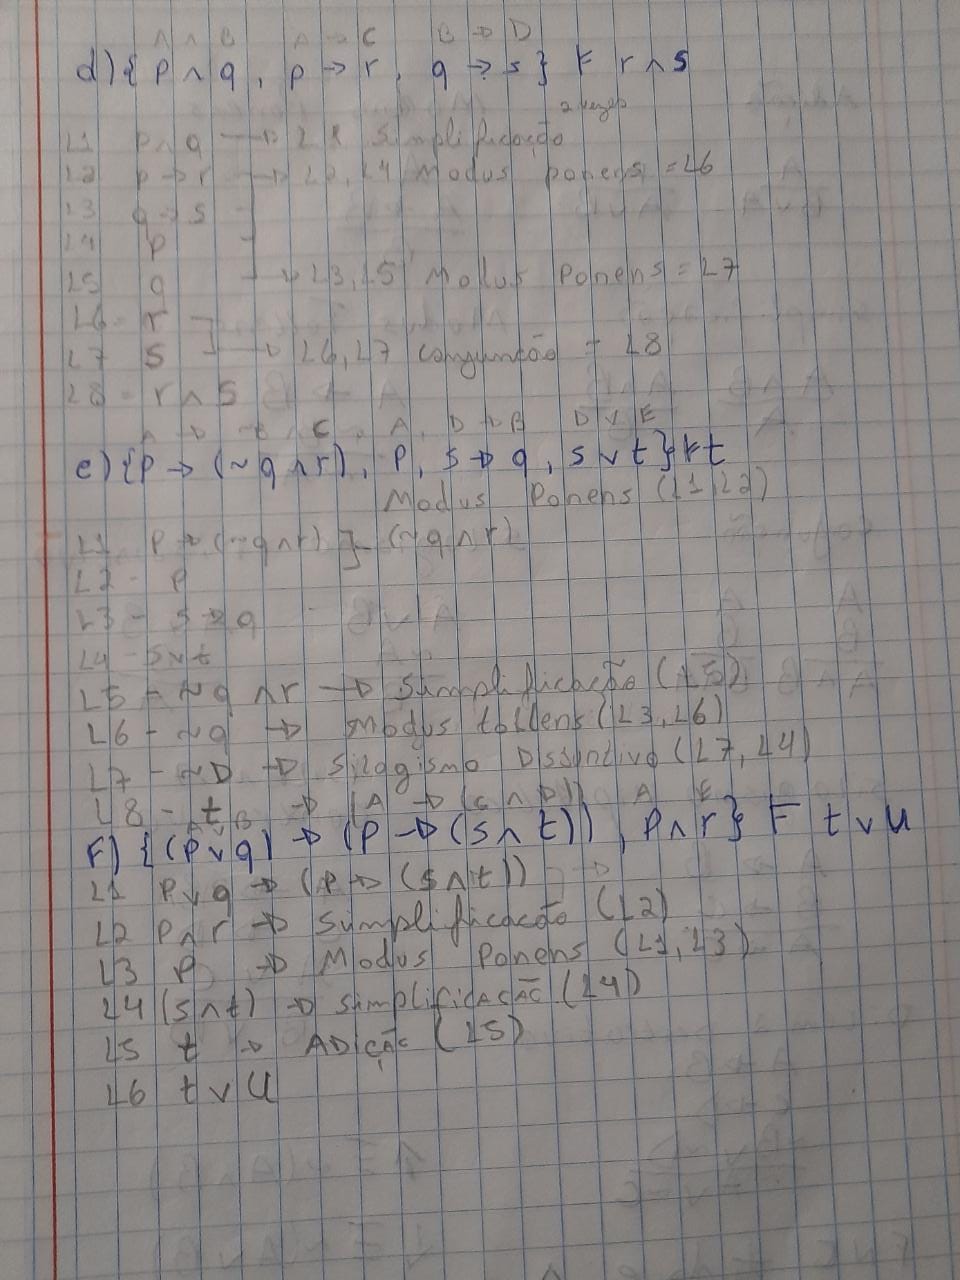 A ∧ B A → C B → D
d) { p ∧ q , p → r , q → s } ⊢ r ∧ s
2 vezes
L1 p ∧ q → L1 Simplificação
L2 p → r → L2, L4 Modus ponens = L6
L3 q → s
L4 p
L5 q → L3, L5 Modus Ponens = L7
L6 - r
L7 S → L6, L7 conjunção = L8
L8 - r ∧ s
A → ~B ∧ C , A , D → B D ∨ E
e) { p → (~q ∧ r) , p , s → q , s ∨ t } ⊢ t
Modus Ponens (L1, L2)
L1 p → (~q ∧ r) } (~q ∧ r)
L2 - p
L3 - s → q
L4 - s ∨ t
L5 - ~q ∧ r → Simplificação (L5)
L6 - ~q → Modus tollens (L3, L6)
L7 - ~D → Silogismo Dissuntivo (L7, L4)
L8 - t
A ∨ B → (A → (C ∧ D)) A E
F) { (p ∨ q) → (p → (s ∧ t)) , p ∧ r } ⊢ t ∨ u
L1 p ∨ q → (p → (s ∧ t))
L2 p ∧ r → Simplificação (L2)
L3 p → Modus Ponens (L1, L3)
L4 (s ∧ t) → simplificação (L4)
L5 t → ADIÇÃO (L5)
L6 t ∨ U